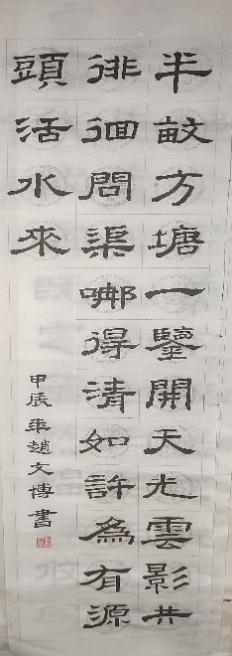 半畝方塘一鑒開天光雲影共
徘徊問渠哪得清如許為有源
頭活水來
甲辰年趙文博書